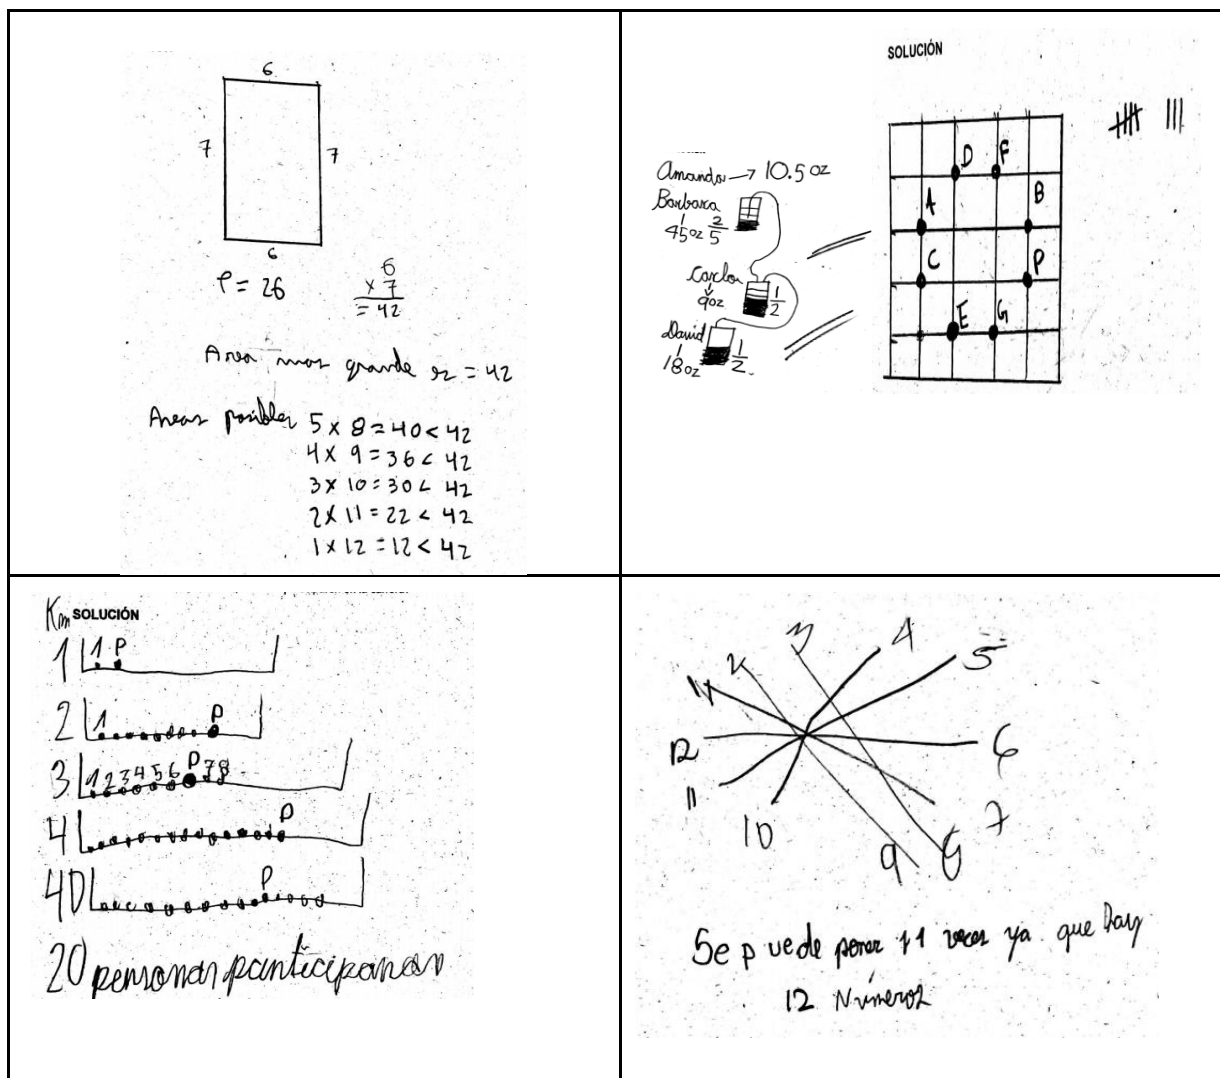 6
7
7
6
P = 26
6
x 7
= 42
Area mas grande es = 42
Areas posibles 5 x 8 = 40 < 42
4 x 9 = 36 < 42
3 x 10 = 30 < 42
2 x 11 = 22 < 42
1 x 12 = 12 < 42
SOLUCIÓN
Amanda → 10.5 oz
Barbara
45oz 2/5
Carlos
9oz 1/2
David
18oz 1/2
D F
A B
C P
E G
Km SOLUCIÓN
1 1 P
2 1 P
3 1 2 3 4 5 6 P 7 8
4 P
40 P
20 personas participaron
3 4
5
6
12
11
10
9
7
Se puede poner 11 veces ya que hay
12 Números